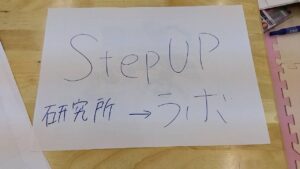 StepUP
研究所 → ラボ